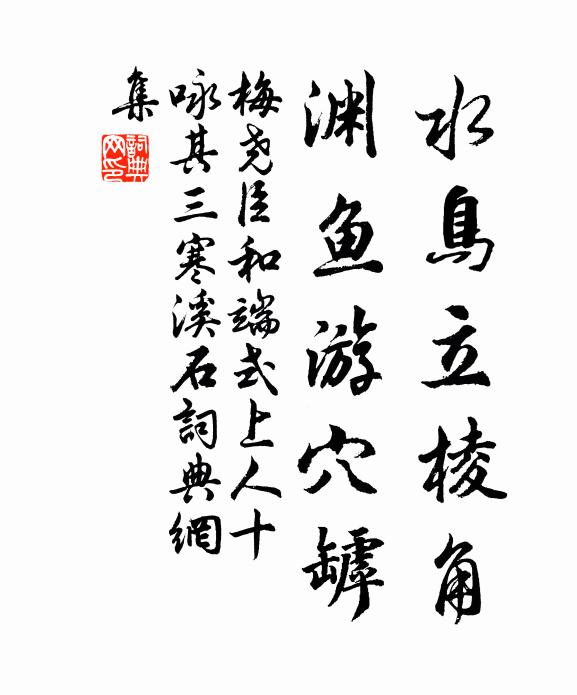 水鳥立棱角
渊鱼游穴罅
梅尧臣和端式上人十
咏其三寒溪石詞典網
集
詞典网印